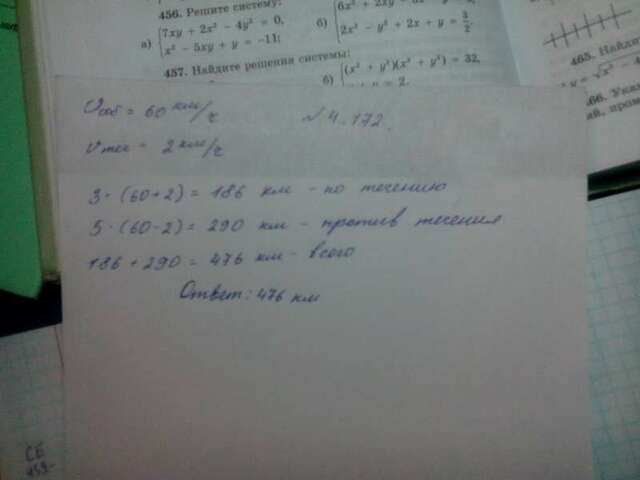 456. Решите систему:
а) 7xy + 2x² − 4y² = 0,
x² − 5xy + y = −11;
б)
2x² − y² + 2x + y = 3/2.
457. Найдите решения системы:
б) (x² + y²) = 32,
y = 2.
465. Найдит
Vсоб = 60 км/ч
№ 4.172.
Vтеч = 2 км/ч
3·(60+2) = 186 км - по течению
5·(60-2) = 290 км - против течения
186 + 290 = 476 км - всего
Ответ: 476 км
СБ